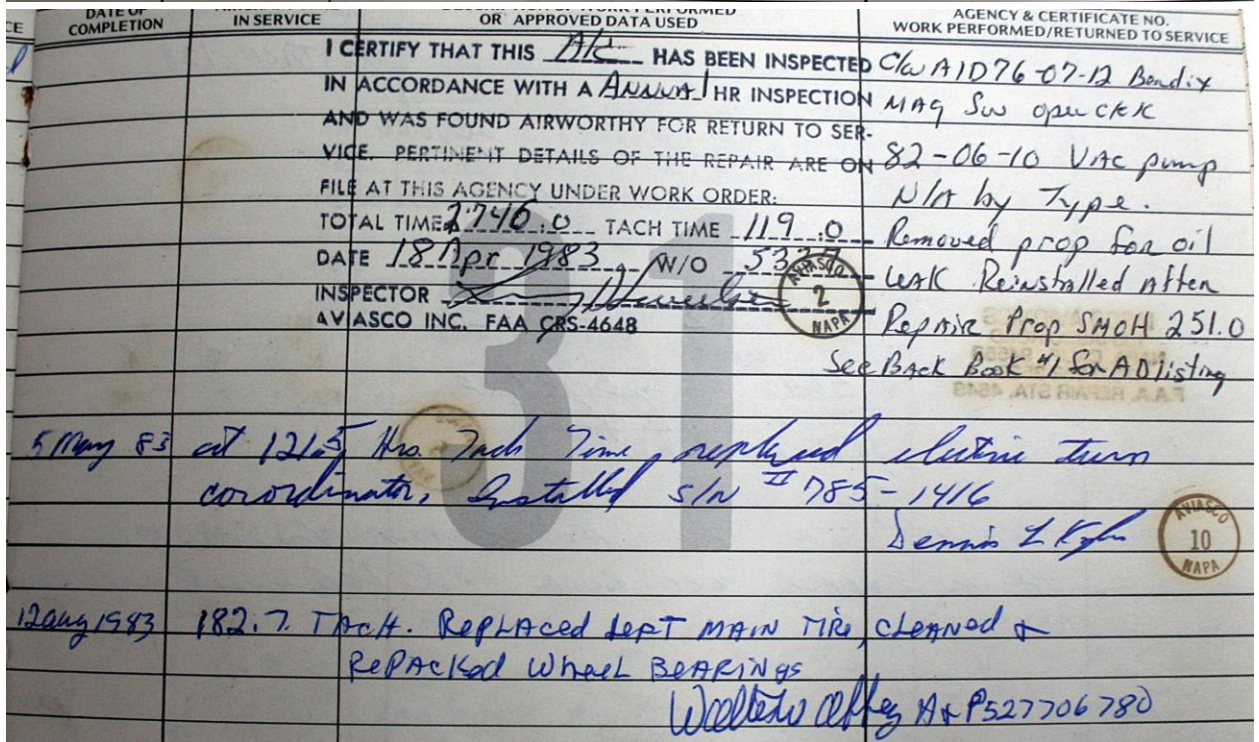 DATE OF COMPLETION
IN SERVICE
OR APPROVED DATA USED
AGENCY & CERTIFICATE NO.
WORK PERFORMED/RETURNED TO SERVICE
I CERTIFY THAT THIS A/C HAS BEEN INSPECTED
IN ACCORDANCE WITH A Annual HR INSPECTION
AND WAS FOUND AIRWORTHY FOR RETURN TO SER-
VICE. PERTINENT DETAILS OF THE REPAIR ARE ON
FILE AT THIS AGENCY UNDER WORK ORDER:
TOTAL TIME 2746.0 TACH TIME 119.0
DATE 18 Apr 1983 W/O
INSPECTOR
AVIASCO INC. FAA CRS-4648
AVIASCO 2 NAPA
C/W A/D 76-07-12 Bendix
MAg Sw open ckk
82-06-10 VAC pump
N/A by Type.
Removed prop for oil
LEAK Reinstalled After
Repair Prop SMOH 251.0
See BAck Book #1 for AD listing
31
5 May 83 at 121.5 Hrs. Tach Time, replaced electric turn
coroordinator, Installed S/N II 785-1416
Dennis L
AVIASCO 10 NAPA
12 aug 1983 182.7 TAcH. RepLAced LefT MAIN TIRe, cLeANed &
RePAcked WheeL BeARiNgs
A&P 527706780